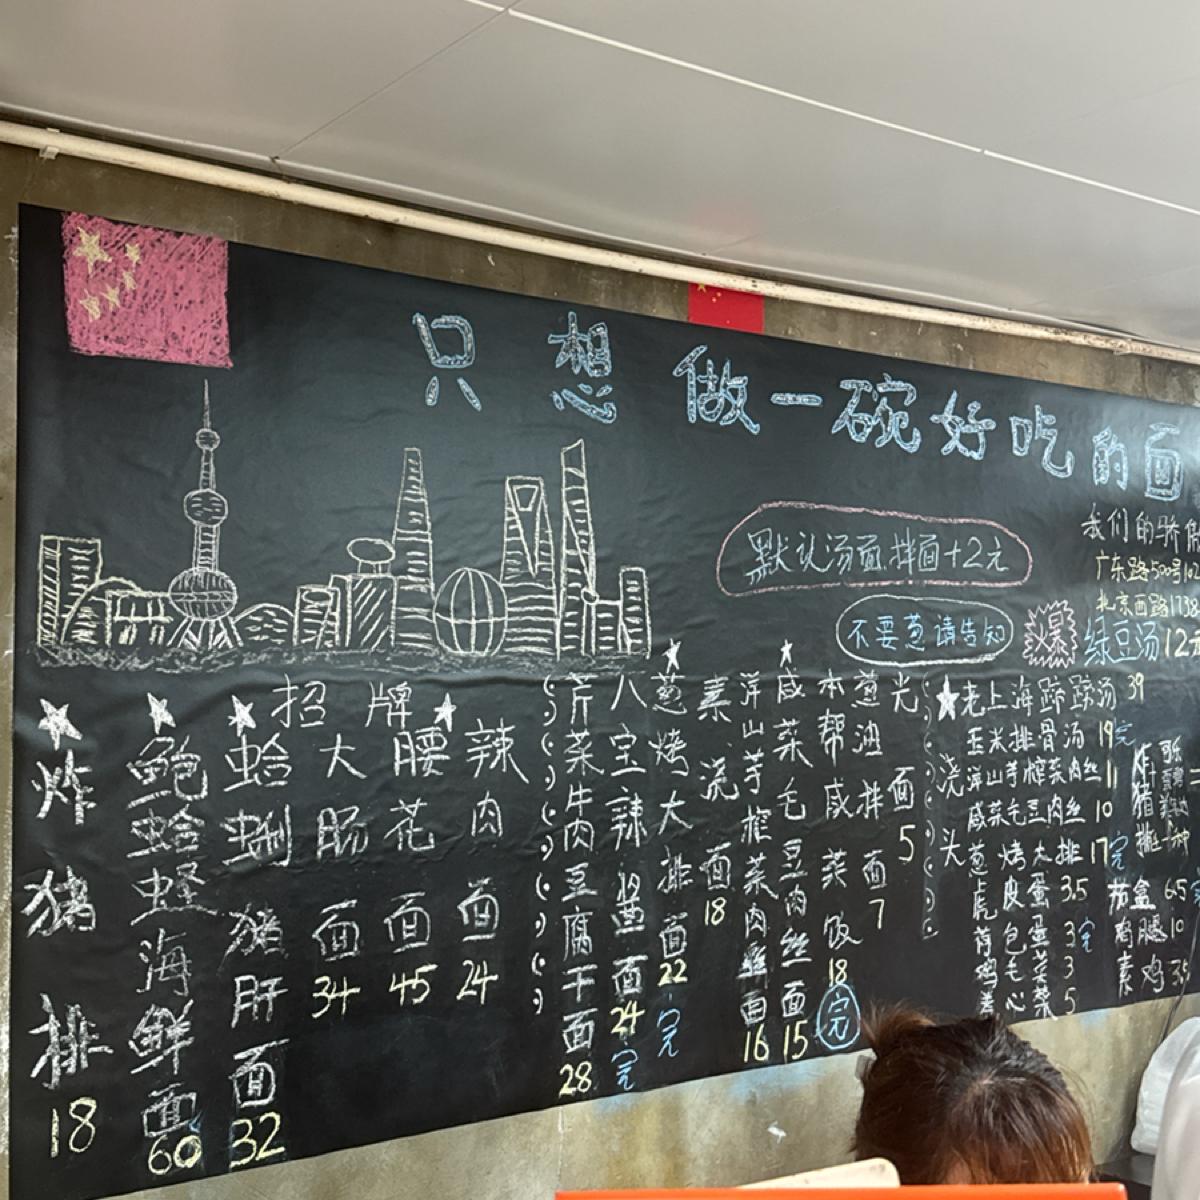 只想做一碗好吃的面
默认汤面,拌面+2元
不要葱请告知
我们的骄傲
广东路500号102
北京西路1738
爆
绿豆汤12元
招牌
炸猪排18
鲍蛤蛏海鲜面60
蛤蜊猪肝面32
大肠面34
腰花面45
辣肉面24
芹菜牛肉豆腐干面28
八宝辣酱面24完
葱烤大排面22完
素浇面18
洋山芋榨菜肉丝面16
咸菜毛豆肉丝面15
本帮咸菜饭18完
葱油拌面7
光面5
浇头
老上海踪踪汤39
玉米排骨汤19完
洋山芋榨菜肉丝11
咸菜毛豆肉丝10
葱烤大排17完
虎皮蛋3.5
荷包蛋3完
鸡毛菜3
5
炸猪排
茄盒6.5
鸡腿10
素鸡3.5